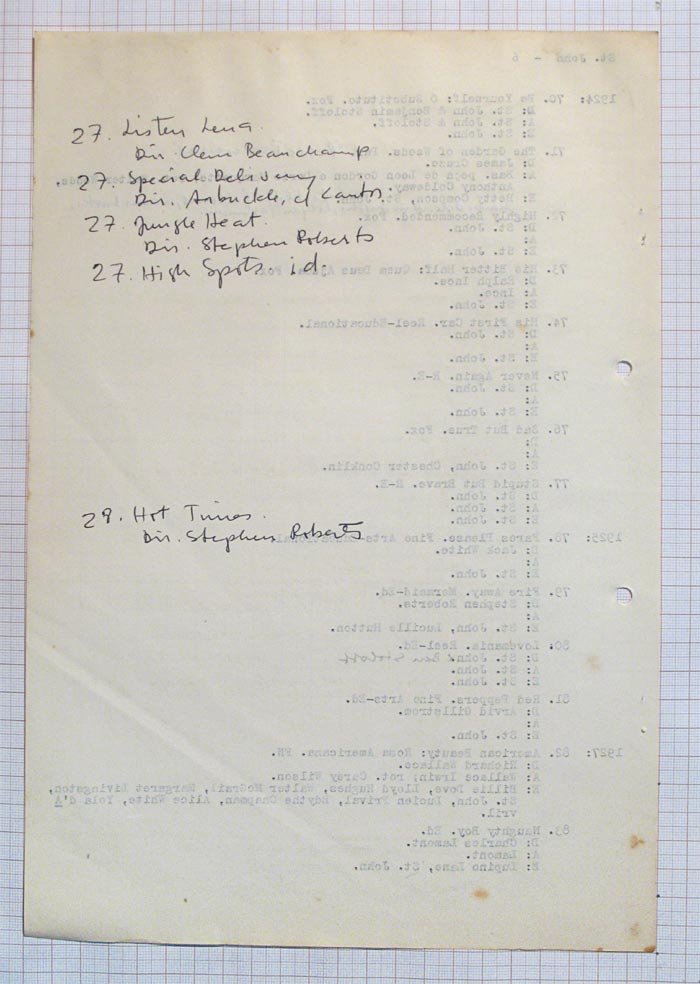 27. Listen Lena.
Dir. Clem Beauchamp
27. Special Delivery
Dir. Arbuckle, d Cantor.
27. Jungle Heat.
Dir. Stephen Roberts
27. High Spots. id.
28. Hot Times.
Dir. Stephen Roberts
St. John - 6
1924: 70. Be Yourself: O Substituto. Fox.
D: St. John & Benjamin Stoloff.
A: St. John & Stoloff.
71. The Garden of Weeds.
D: James Cruze.
A: Ban. peça de Leon Gordon
Anthony Coldeway
E: Betty Compson, St. John
72. Highly Recommended. Fox.
D: St. John.
A:
E: St. John.
73. His Bitter Half: Guem Deus Ajuda. Fox
D: Ralph Ince.
A: Ince.
E: St. John.
74. His First Car. Reel-Educational.
D: St. John.
A:
E: St. John.
75. Never Again. R-E.
D: St. John.
A:
E: St. John.
76. Sad But True. Fox.
D:
A:
E: St. John, Chester Conklin.
77. Stupid But Brave. R-E.
D: St. John.
A: St. John.
E: St. John.
1925: 78. Fares Please. Fine Arts-Educational.
D: Jack White.
A:
E: St. John.
79. Fire Away. Mermaid-Ed.
D: Stephen Roberts.
A:
E: St. John, Lucille Hutton.
80. Lovemania. Reel-Ed.
D: St. John & Ben Stoloff
A: St. John.
E: St. John.
81. Red Peppers. Fine Arts-Ed.
D: Arvid Gillstrom.
A:
E: St. John.
1927: 82. American Beauty: Rosa Americana. FN.
D: Richard Wallace.
A: Wallace Irwin; rot. Carey Wilson.
E: Billie Dove, Lloyd Hughes, Walter McGrail, Margaret Livingston,
St. John, Lucien Prival, Edythe Chapman, Alice White, Yola d'A
vril.
83. Naughty Boy. Ed.
D: Charles Lamont.
A: Lamont.
E: Lupino Lane, St. John.